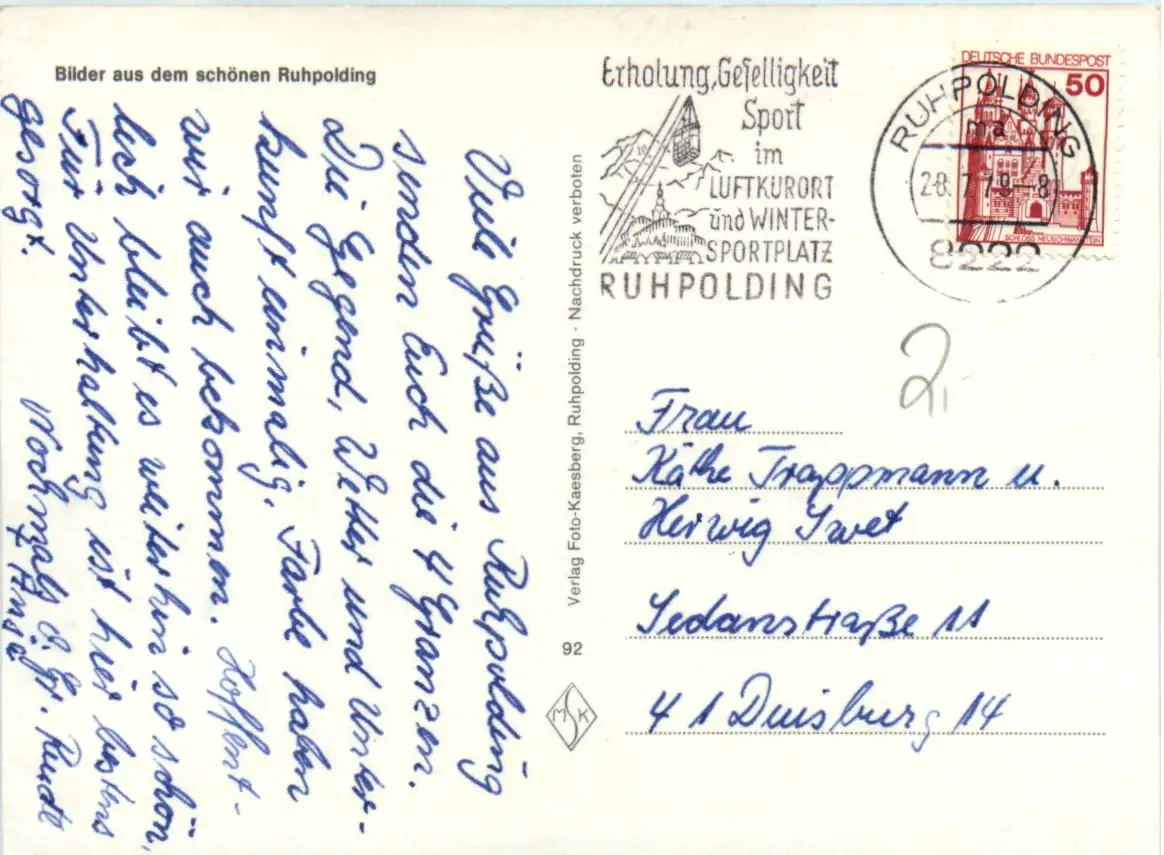 Bilder aus dem schönen Ruhpolding
Viele Grüße aus Ruhpolding
senden Euch die 4 Granzen.
Die Gegend, Wetter und Unter-
kunft einmalig. Farbe haben
wir auch bekommen. Hoffent-
lich bleibt es weiterhin so schön,
Für Unterhaltung ist hier bestens
gesorgt.
Nochmals
Verlag Foto-Kaesberg, Ruhpolding - Nachdruck verboten
92
M S K
Erholung, Geselligkeit
Sport
im
LUFTKURORT
und WINTER-
SPORTPLATZ
RUHPOLDING
DEUTSCHE BUNDESPOST
50
SCHLOSS NEUSCHWANSTEIN
RUHPOLDING
ma
28.7.79-8
8222
2,-
Frau
Käthe Trappmann u.
Herwig Iwet
Sedanstraße 11
41 Duisburg 14